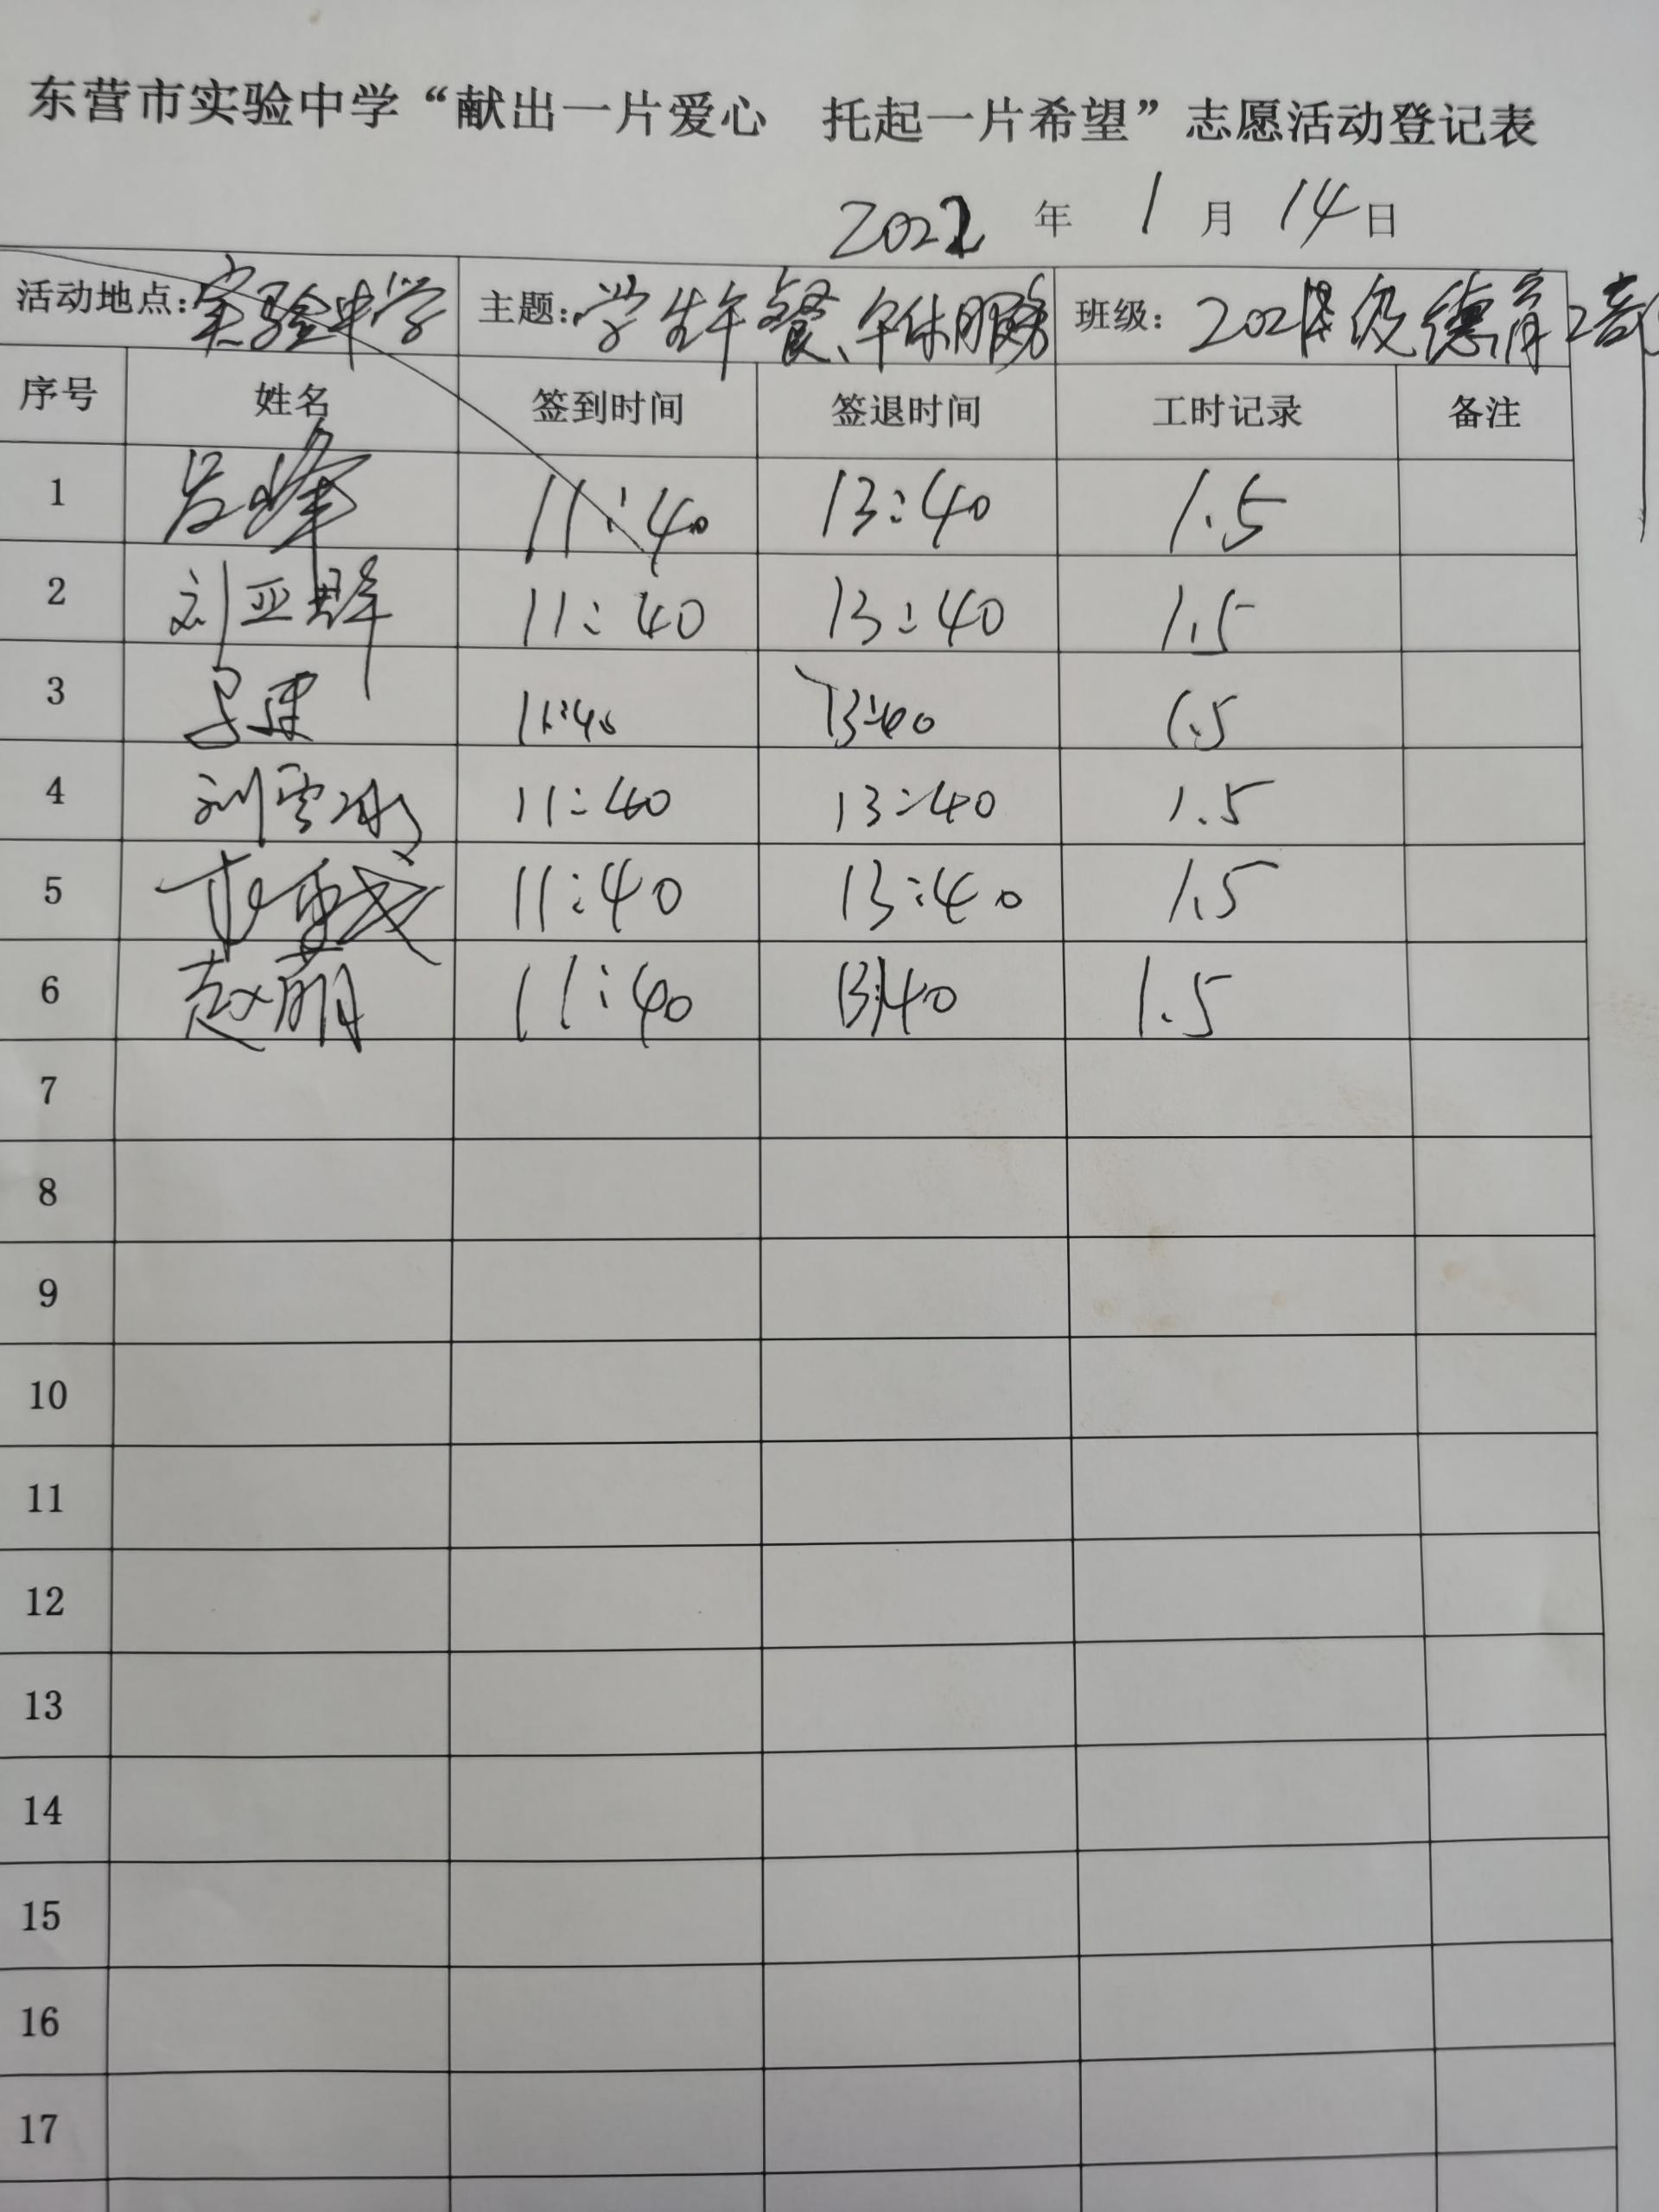 东营市实验中学“献出一片爱心 托起一片希望”志愿活动登记表
2022 年 1 月 14 日
活动地点：实验中学 主题：学生午餐、午休服务 班级：2021级德育2部
序号 姓名 签到时间 签退时间 工时记录 备注
1 吕峰 11:40 13:40 1.5
2 刘亚群 11:40 13:40 1.5
3 11:40 13:40 1.5
4 刘雪冰 11:40 13:40 1.5
5 11:40 13:40 1.5
6 赵萌 11:40 13:40 1.5
7
8
9
10
11
12
13
14
15
16
17